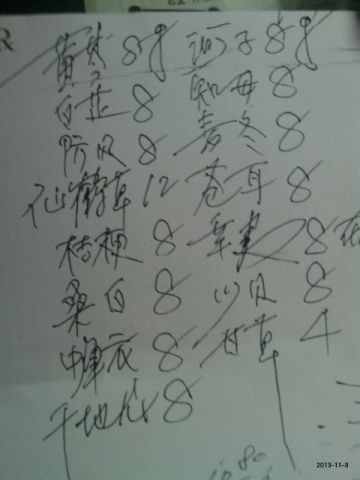 黄芩 8g 诃子 8g
白芷 8 知母 8
防风 8 麦冬 8
仙鹤草 12 苍耳 8
桔梗 8 辛夷 8
桑白 8 川贝 8
蝉衣 8 甘草 4
干地龙 8
2013-11-3